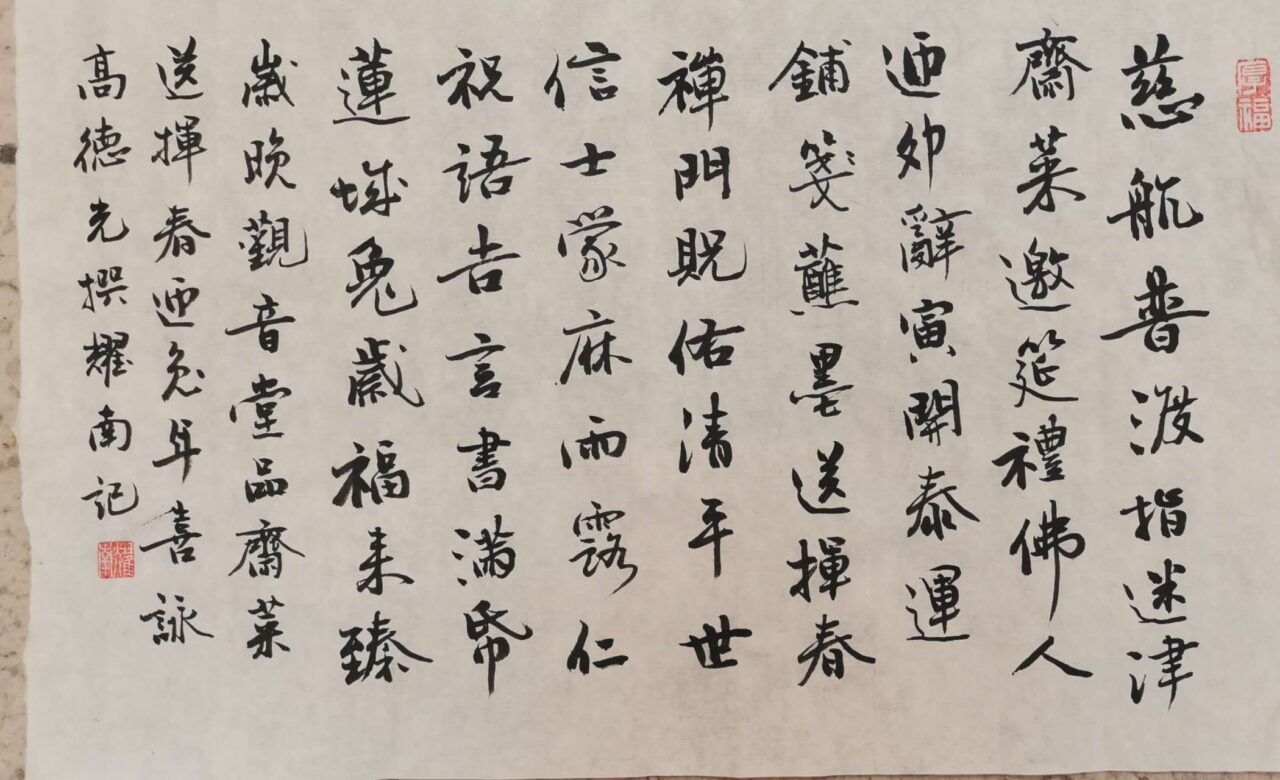 慈航普渡指迷津
齋菜邀筵禮佛人
迎卯辭寅開泰運
鋪箋蘸墨送揮春
禪門貺佑清平世
信士蒙庥雨露仁
祝語吉言書滿帋
蓮城兔歲福来臻
歲晚觀音堂品齋菜
送揮春迎兔年喜詠
高德光撰耀南記
耀南